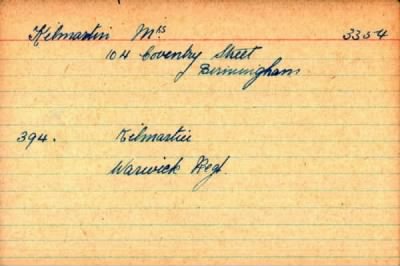 Kilmartin Mrs 3354
104 Coventry Street
Birmingham
394. Kilmartin
Warwick Regt.